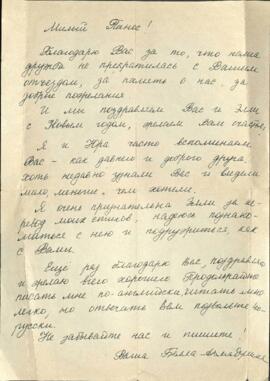 Милый Панес!
Благодарю Вас за то, что наша
дружба не прекратилась с Вашим
отъездом, за память о нас, за
добрые пожелания
И мы поздравляем Вас и Элли
с Новым годом, желаем Вам счастья,
Я и Юра часто вспоминаем
Вас – как давнего и доброго друга,
хоть недавно узнали Вас и видели
мало, меньше, чем хотели.
Я очень признательна Элли за пе-
ревод моих стихов, надеюсь познако-
миться с нею и подружиться, как
с Вами.
Ещё раз благодарю вас, поздравляю
и желаю всего хорошего. Продолжайте
писать мне по-английски, читать мне
легко, но отвечать Вам позвольте по-
русски.
Не забывайте нас и пишите!
Ваша Белла Ахмадулина